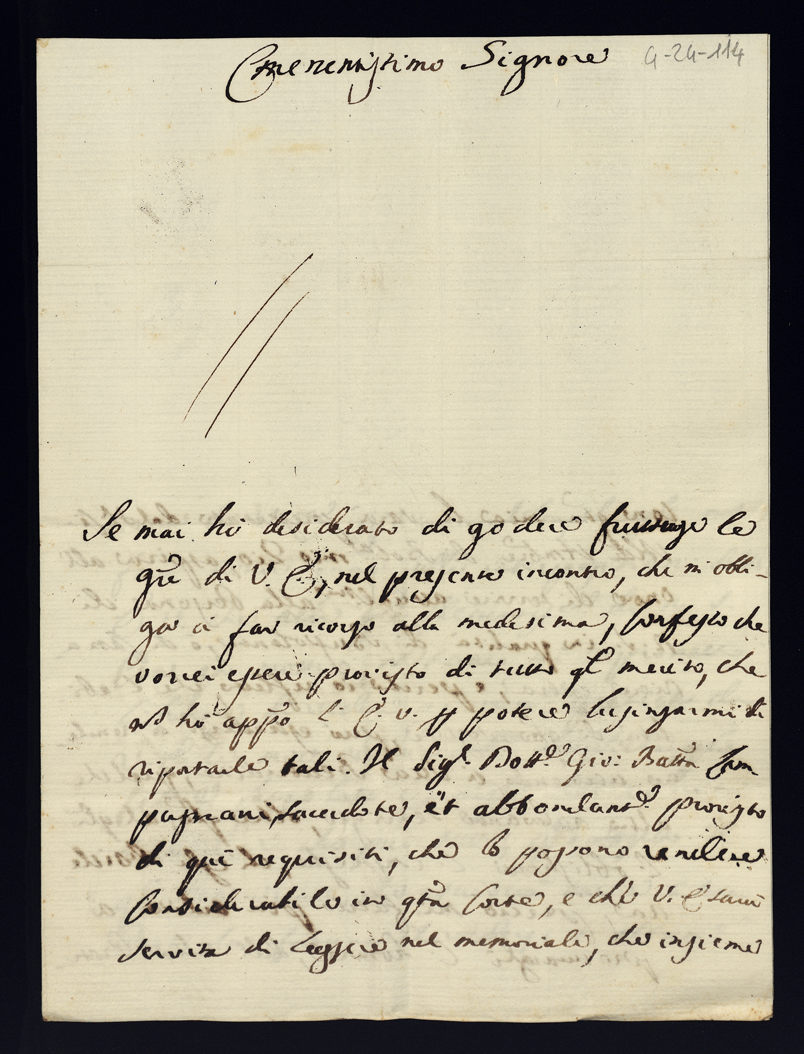 Emenentissimo Signore
4-24-114
Se mai hò desiderato di godere fruttuose le
gr̃e di V. E., nel presente incontro, che m'obli-
ga à far ricorso alla medesima, Confesso che
vorrei essere provisto di tutto ql̃ merito, che
nõ hò app̃o l'E. V. p̲ potere lusingarmi di
riportarle tali. Il Sig.r Dott.e Gio: Batta Com
pagnani, sacerdote, è abbondant.e provisto
di que requisiti, che lo possono rendere
Considerabile in qsta Corte, e che V. E. sarà
servita di leggere nel memoriale, che insieme